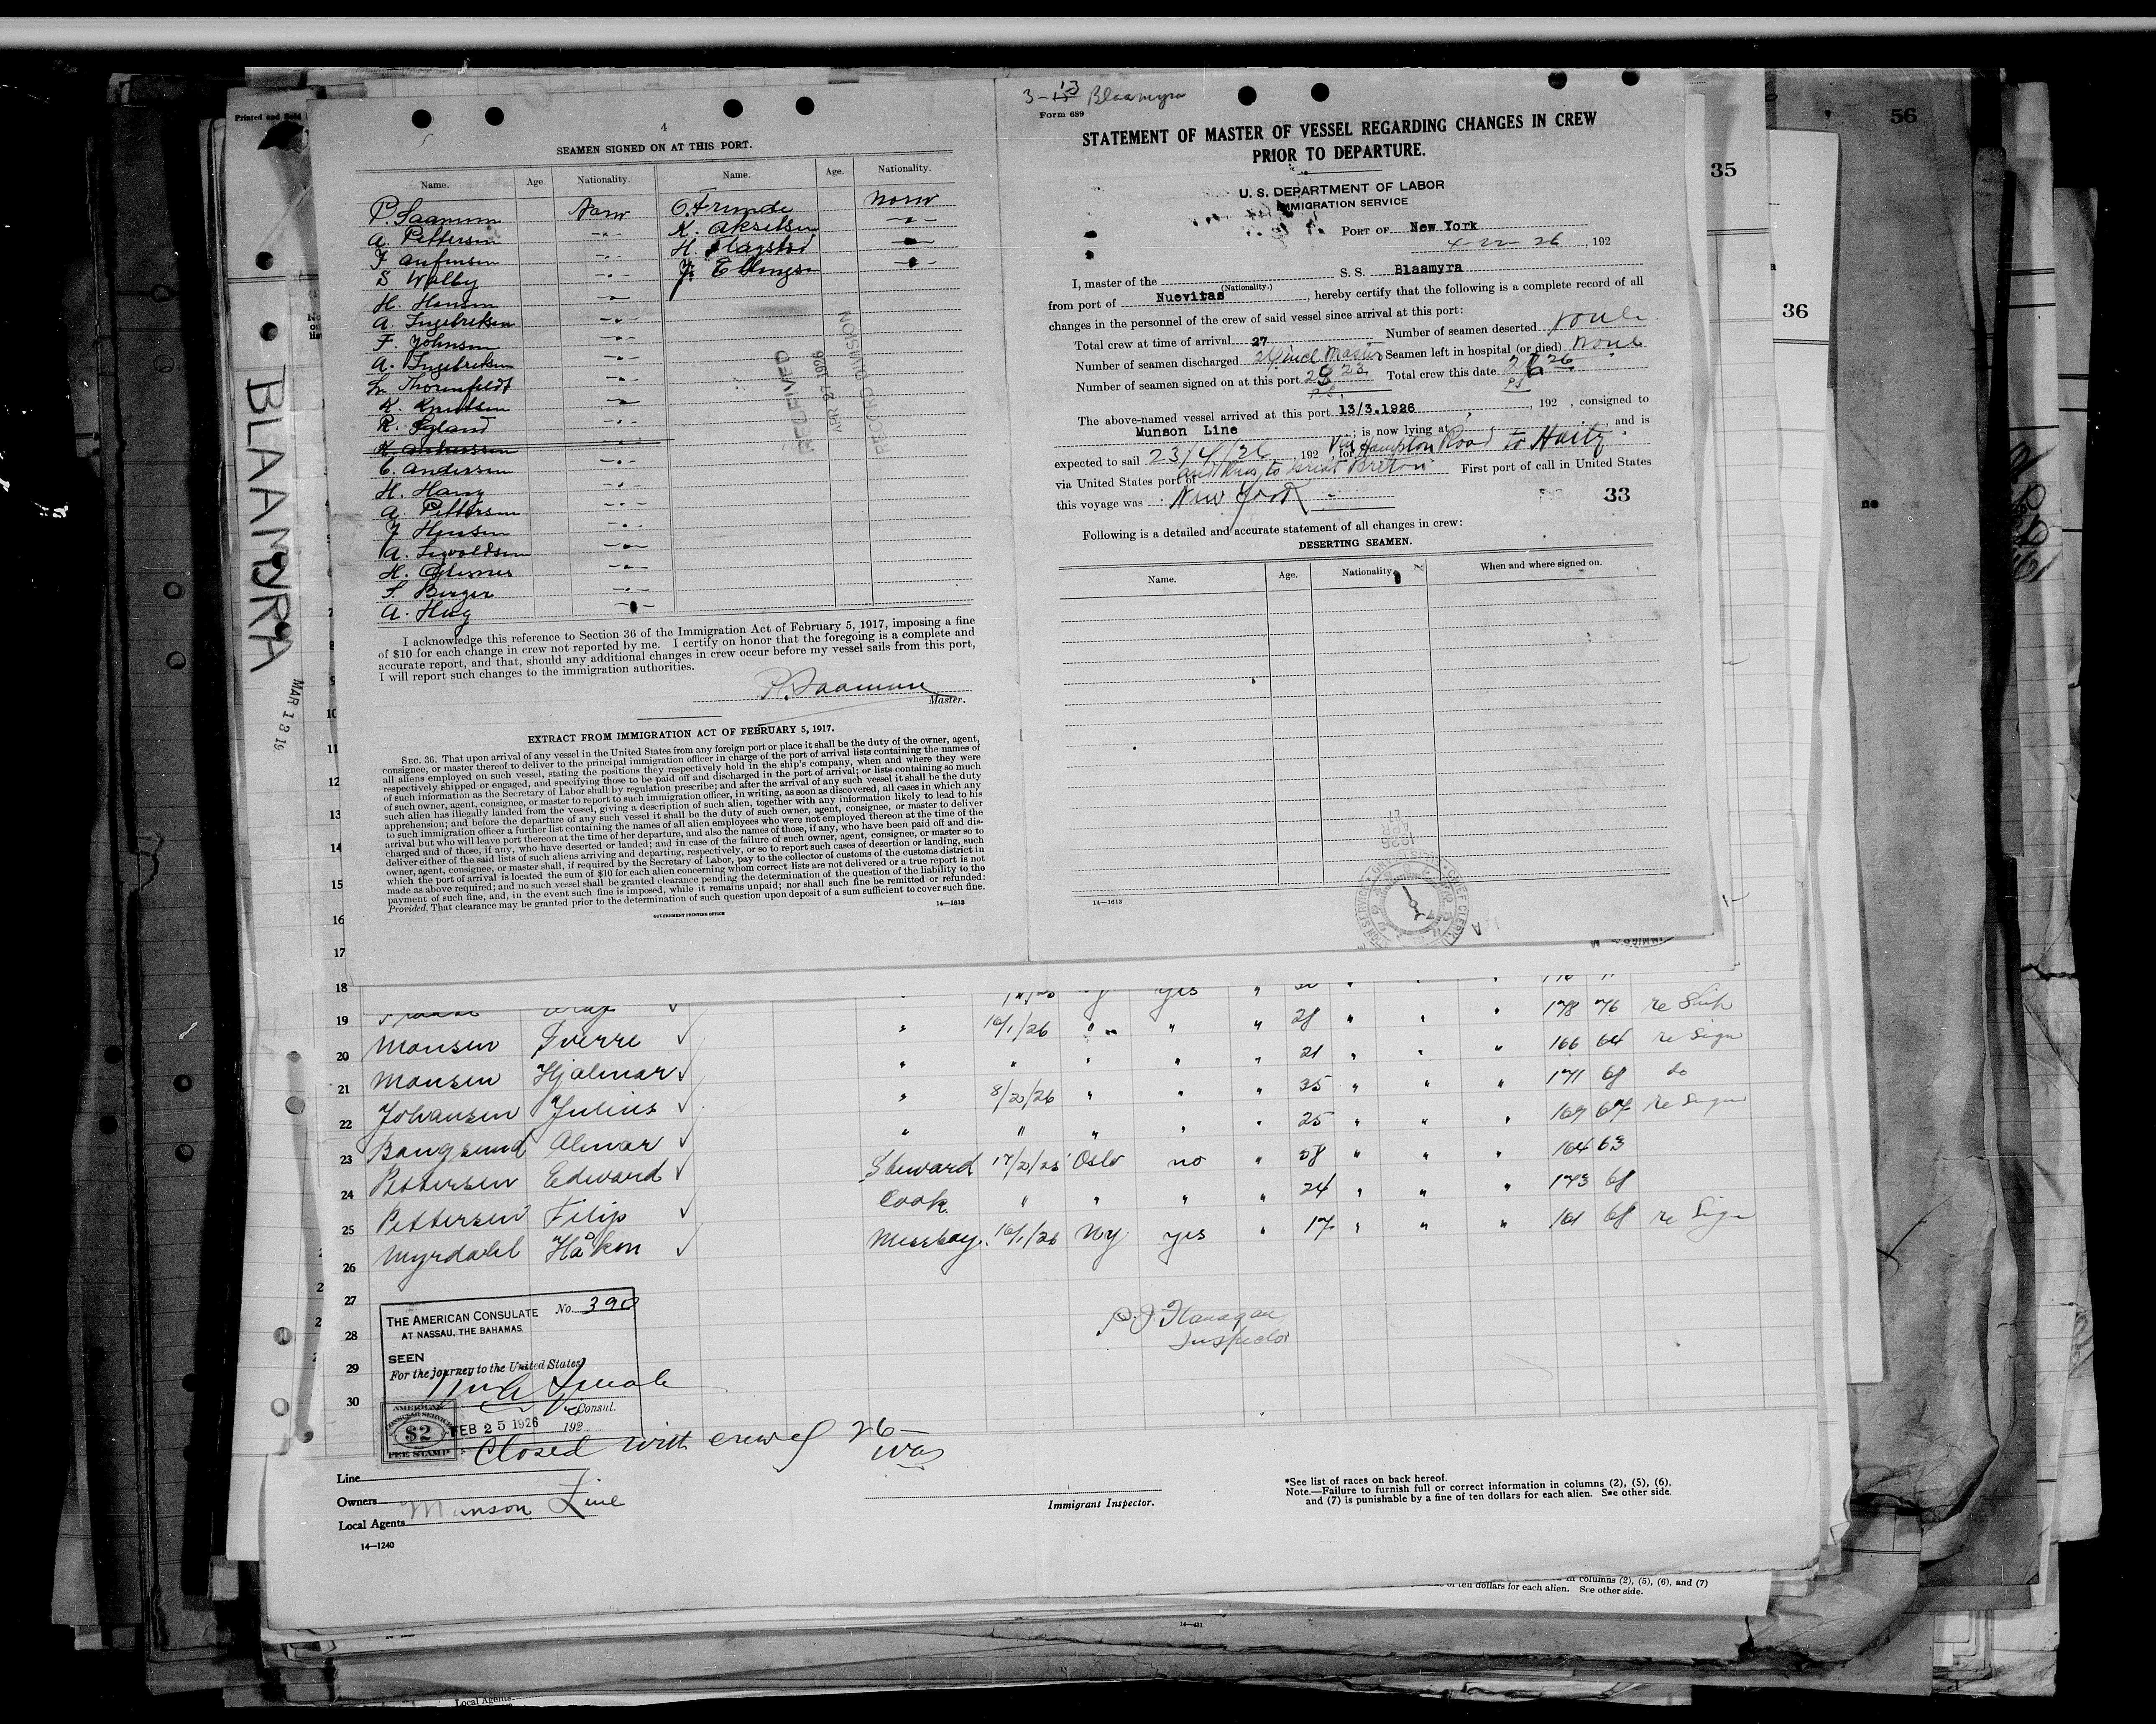 4
SEAMEN SIGNED ON AT THIS PORT.
Name. Age. Nationality. Name. Age. Nationality.
P. Saamum Norw O. Frunde Norw
A. Pettersen -"- K. Akselsen -"-
-"- H. Flagstad -"-
S Walby -"- Ellingsen -"-
H. Hansen -"-
A. Ingebriksen -"-
F. Johnsen -"-
A. Ingebriksen -"-
L. Thornfeldt -"-
K. Knutsen -"-
R. Syland -"-
C. Andersen -"-
H. Haug -"-
A. Pettersen -"-
J Hansen -"-
A. -"-
H. -"-
S. Berger -"-
A. Haug -"-
RECEIVED
APR 27 1926
RECORD DIVISION
I acknowledge this reference to Section 36 of the Immigration Act of February 5, 1917, imposing a fine
of $10 for each change in crew not reported by me. I certify on honor that the foregoing is a complete and
accurate report, and that, should any additional changes in crew occur before my vessel sails from this port,
I will report such changes to the immigration authorities.
P. Saamum
Master.
EXTRACT FROM IMMIGRATION ACT OF FEBRUARY 5, 1917.
SEC. 36. That upon arrival of any vessel in the United States from any foreign port or place it shall be the duty of the owner, agent,
consignee, or master thereof to deliver to the principal immigration officer in charge of the port of arrival lists containing the names of
all aliens employed on such vessel, stating the positions they respectively hold in the ship's company, when and where they were
respectively shipped or engaged, and specifying those to be paid off and discharged in the port of arrival; or lists containing so much
of such information as the Secretary of Labor shall by regulation prescribe; and after the arrival of any such vessel it shall be the duty
of such owner, agent, consignee, or master to report to such immigration officer, in writing, as soon as discovered, all cases in which any
such alien has illegally landed from the vessel, giving a description of such alien, together with any information likely to lead to his
apprehension; and before the departure of any such vessel it shall be the duty of such owner, agent, consignee, or master to deliver
to such immigration officer a further list containing the names of all alien employees who were not employed thereon at the time of the
arrival but who will leave port thereon at the time of her departure, and also the names of those, if any, who have been paid off and dis-
charged and of those, if any, who have deserted or landed; and in case of the failure of such owner, agent, consignee, or master so to
deliver either of the said lists of such aliens arriving and departing, respectively, or so to report such cases of desertion or landing, such
owner, agent, consignee, or master shall, if required by the Secretary of Labor, pay to the collector of customs of the customs district in
which the port of arrival is located the sum of $10 for each alien concerning whom correct lists are not delivered or a true report is not
made as above required; and no such vessel shall be granted clearance pending the determination of the question of the liability to the
payment of such fine, and, in the event such fine is imposed, while it remains unpaid; nor shall such fine be remitted or refunded:
Provided, That clearance may be granted prior to the determination of such question upon deposit of a sum sufficient to cover such fine.
GOVERNMENT PRINTING OFFICE
14—1613
3-13 Blaamyra
Form 689
STATEMENT OF MASTER OF VESSEL REGARDING CHANGES IN CREW
PRIOR TO DEPARTURE.
U. S. DEPARTMENT OF LABOR
IMMIGRATION SERVICE
PORT OF New York
4-22-26, 192
I, master of the S. S. Blaamyra
(Nationality.)
from port of Nuevitas, hereby certify that the following is a complete record of all
changes in the personnel of the crew of said vessel since arrival at this port:
Total crew at time of arrival 27 Number of seamen deserted none
Number of seamen discharged 24 incl Master Seamen left in hospital (or died) None
Number of seamen signed on at this port 23 Total crew this date 26
The above-named vessel arrived at this port 13/3.1926, 192 , consigned to
Munson Line; is now lying at , and is
expected to sail 23/4/26, 192 , for Via Hampton Road to Haity
and thus to Great Breton
via United States port of First port of call in United States
this voyage was New York
33
Following is a detailed and accurate statement of all changes in crew:
DESERTING SEAMEN.
Name. Age. Nationality. When and where signed on.
1926
APR
27
14—1613
BLAAMYRA
MAR 13 19
Printed and Sold
35
36
56
no
10
11
12
13
14
15
16
17
18
19 178 76 re Ship
20 Monsen Sverre " 16/1/26 " " " 28 " " " 166 64 re Sign
21 Monsen Hjalmar " " " " " 21 " " " 171 68 do
22 Johansen Julius " 8/2/26 " " " 35 " " " 169 67 re Sign
23 Bangsund Almar " " " " " 25 " " " 164 63
24 Pettersen Edward Steward 17/2/25 Oslo no " 58 " " " 173 68
25 Pettersen Filip Cook " " " " 24 " " " 161 68 re Sign
26 Myrdahl Håkon Messboy 16/1/26 NY yes " 17 " " "
27
28
29
30
THE AMERICAN CONSULATE No. 390
AT NASSAU, THE BAHAMAS.
SEEN
For the journey to the United States
Vice Consul.
FEB 25 1926 192
AMERICAN
CONSULAR SERVICE
$2
FEE STAMP
Flanagan
Inspector
Closed with crew of 26—
was
Line
Owners
Munson Line
Local Agents
14—1240
Immigrant Inspector.
*See list of races on back hereof.
Note.—Failure to furnish full or correct information in columns (2), (5), (6),
and (7) is punishable by a fine of ten dollars for each alien. See other side.
in columns (2), (5), (6), and (7)
of ten dollars for each alien. See other side.
Local Agents